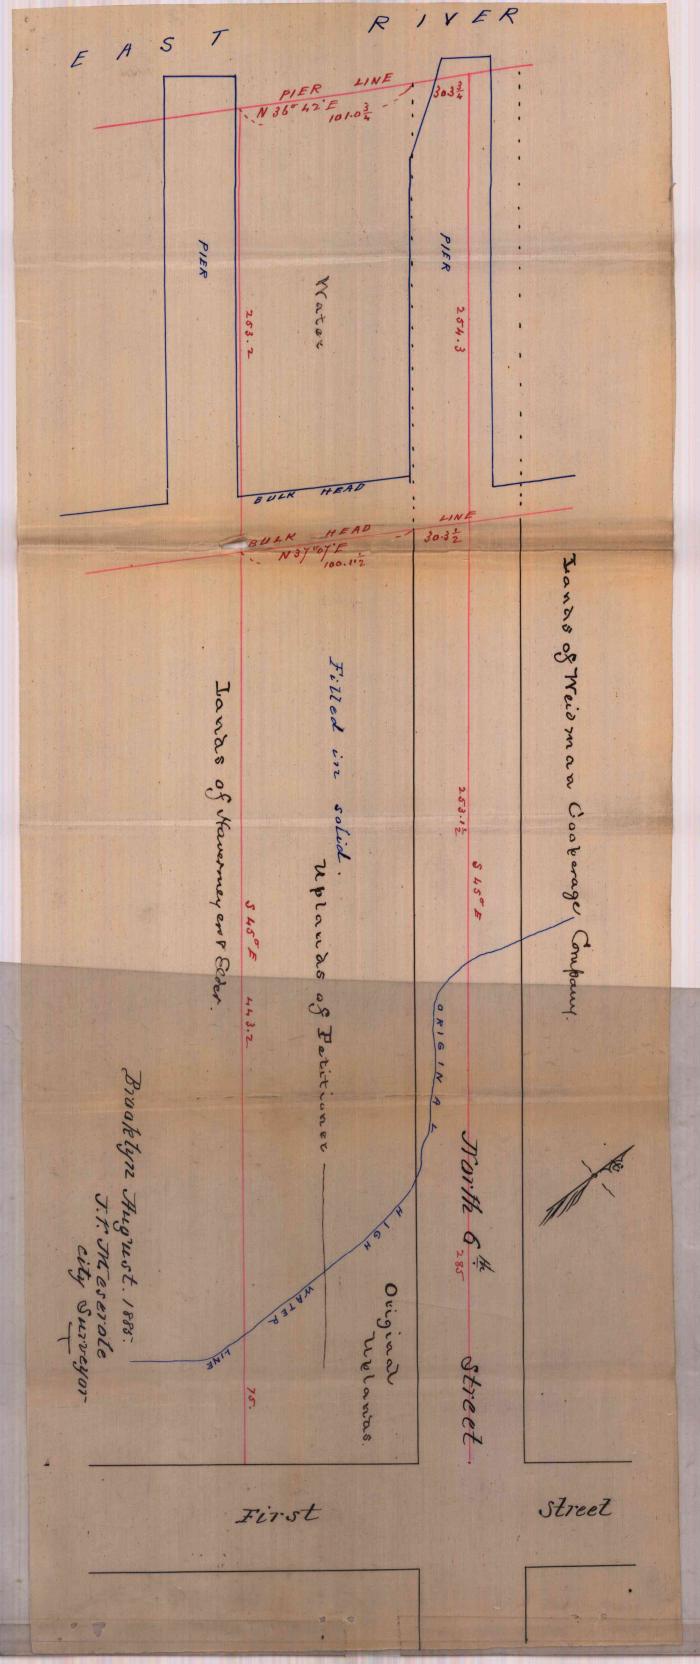 EAST RIVER
PIER LINE
N 36° 42' E
101.0 3/4
30.3 3/4
PIER
PIER
Water
253.2
254.3
BULK HEAD
BULK HEAD LINE
N 37° 07' E
100.1 1/2
30.3 1/2
Lands of Weidman Cooperage Company.
Filled in solid.
Lands of Havermeyer & Elder.
253.1 1/2
S 45° E
Uplands of Petitioner
S 45° E 443.2
ORIGINAL HIGH WATER LINE
North 6th Street
285
Original
Uplands.
75.
Brooklyn August. 1885.
J. V. Meserole
City Surveyor
First Street